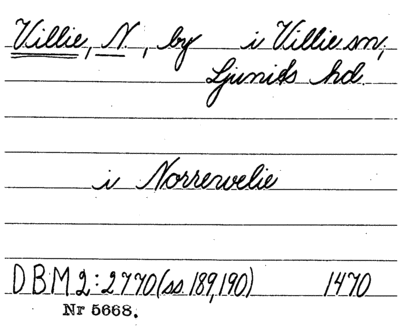 Villie, N, by i Villie sn,
Ljunits hd.
i Norrevelie
DBM 2:2770 (ss. 189, 190) 1470
Nr 5668.